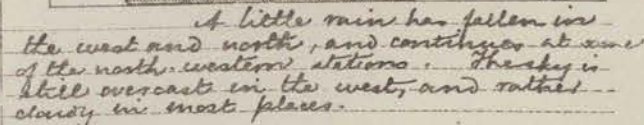 A little rain has fallen in
the west and north, and continues at some
of the north-western stations. The sky is
still overcast in the west, and rather
cloudy in most places.